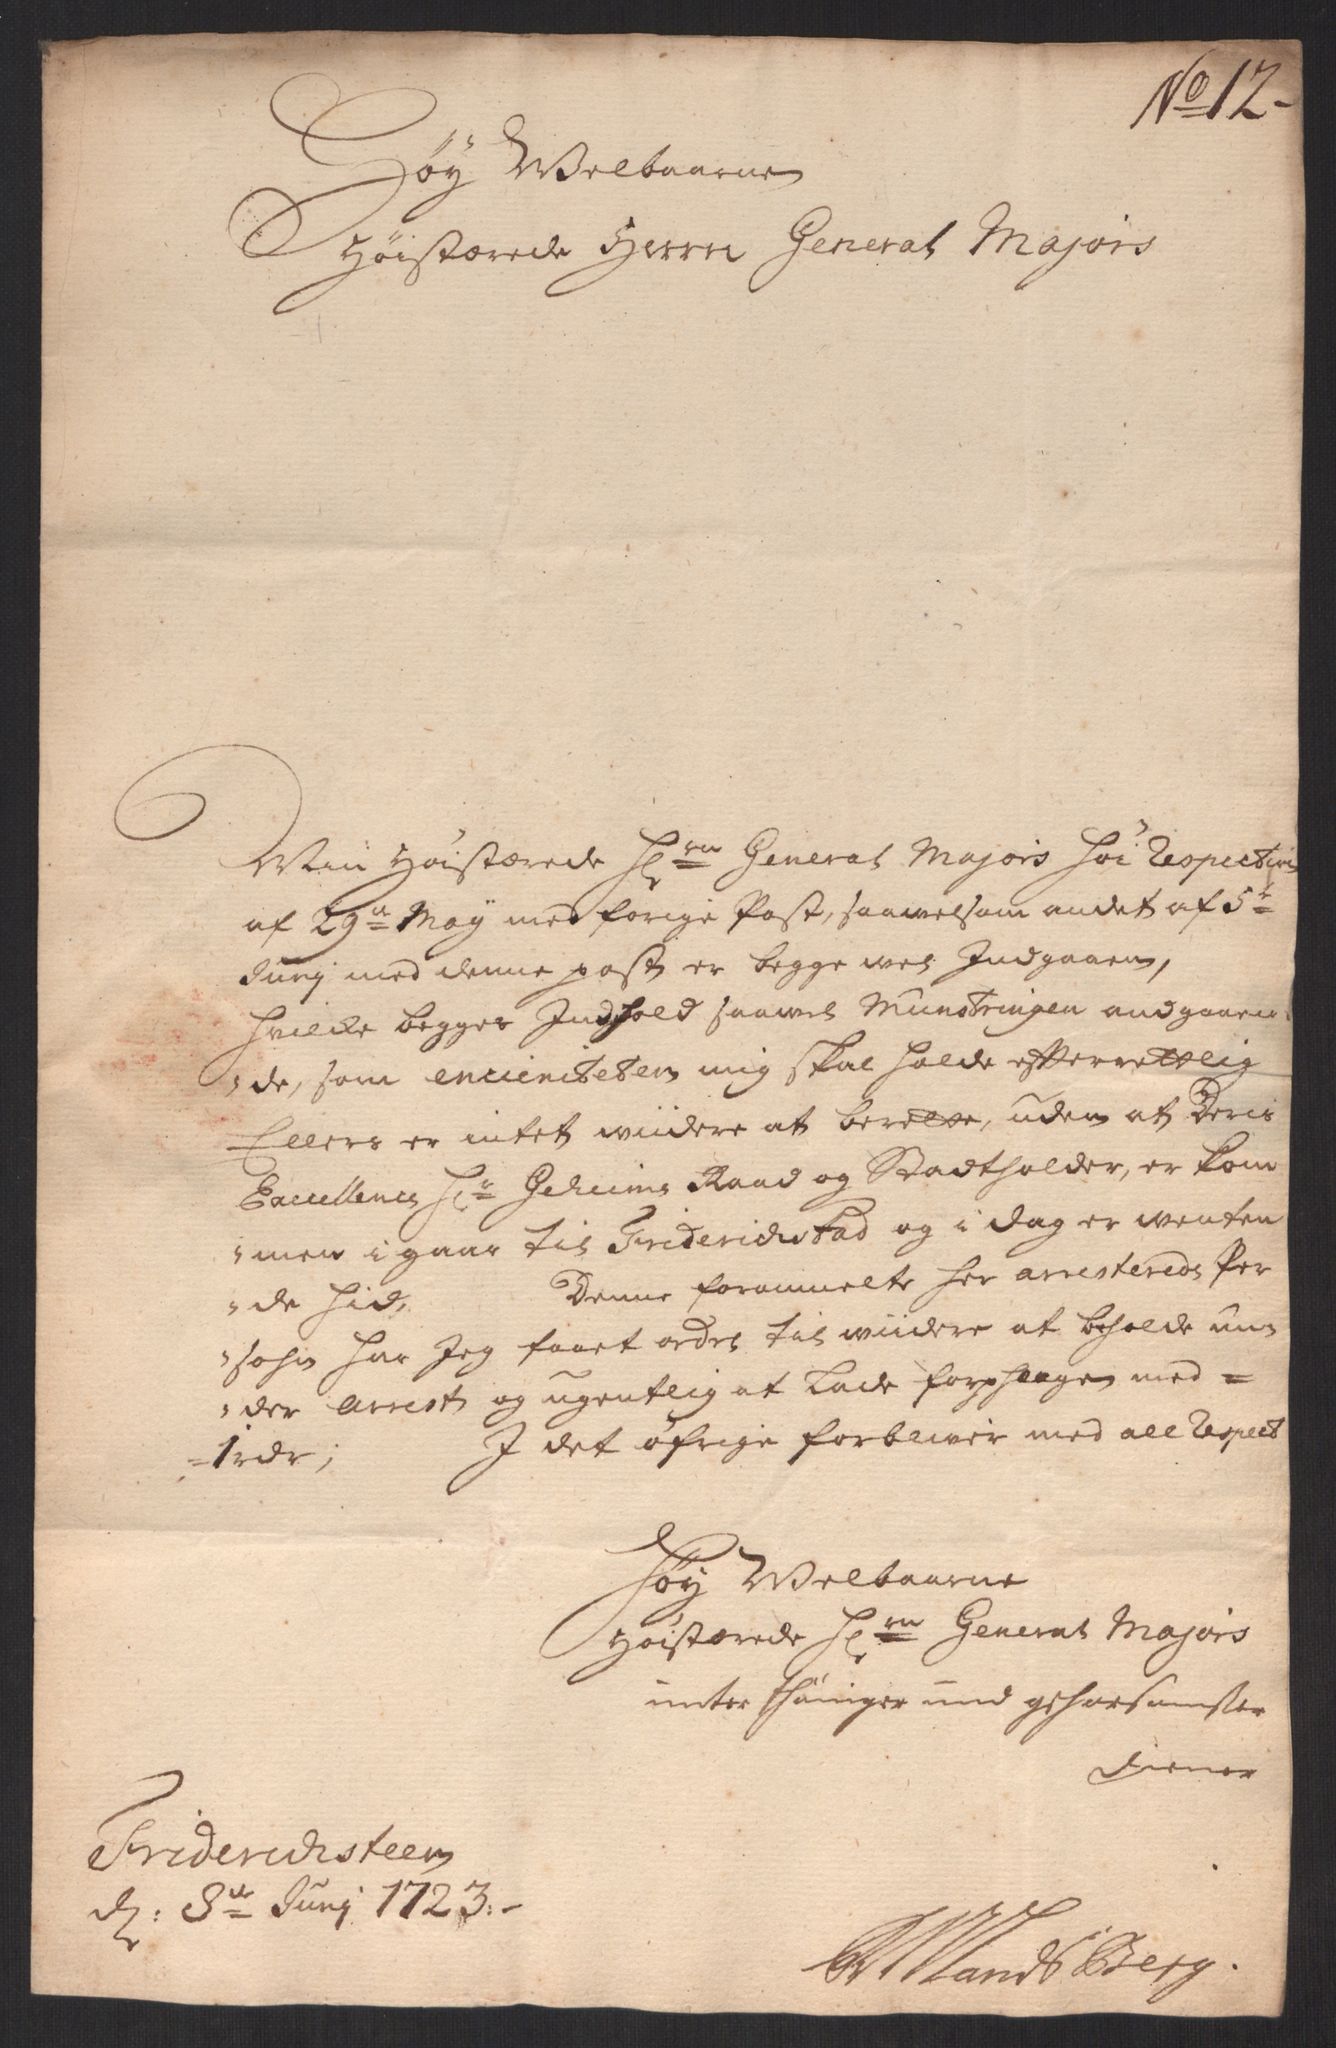 No 12-
Høy Welbaarne
Høistærede Herrn General Majors
Min Høistærede Hrn General Majors høi Respective
af 29de Maÿ med forige Post, saavelsom andet af 5te
Junj med denne post er begge vel Indgaaen,
hvilke begges Indhold saavel Munstringen andgaaen
de, som encieniteten mig skal holde efterrettlig
Ellers er intet widere at berette, uden at Deris
Excellence Hr Geheime Raad og Stadtholder, er kom
men i gaar til Friderichstad og i dag er wenten
de hid, Denne forommelte her arresterede Per
sohn har Jeg faaet ordre til widere at beholde un
der arrest og ugentlig at lade forpflegen med =
= 1 rdr; I det øfrige forbliver med all Respect
Høy Welbaarne
Høistærede Hrn General Majors
unterthäniger und gehorsamster
diener
Friderichsteen
d: 8de Junj 1723.-
Landsberg.